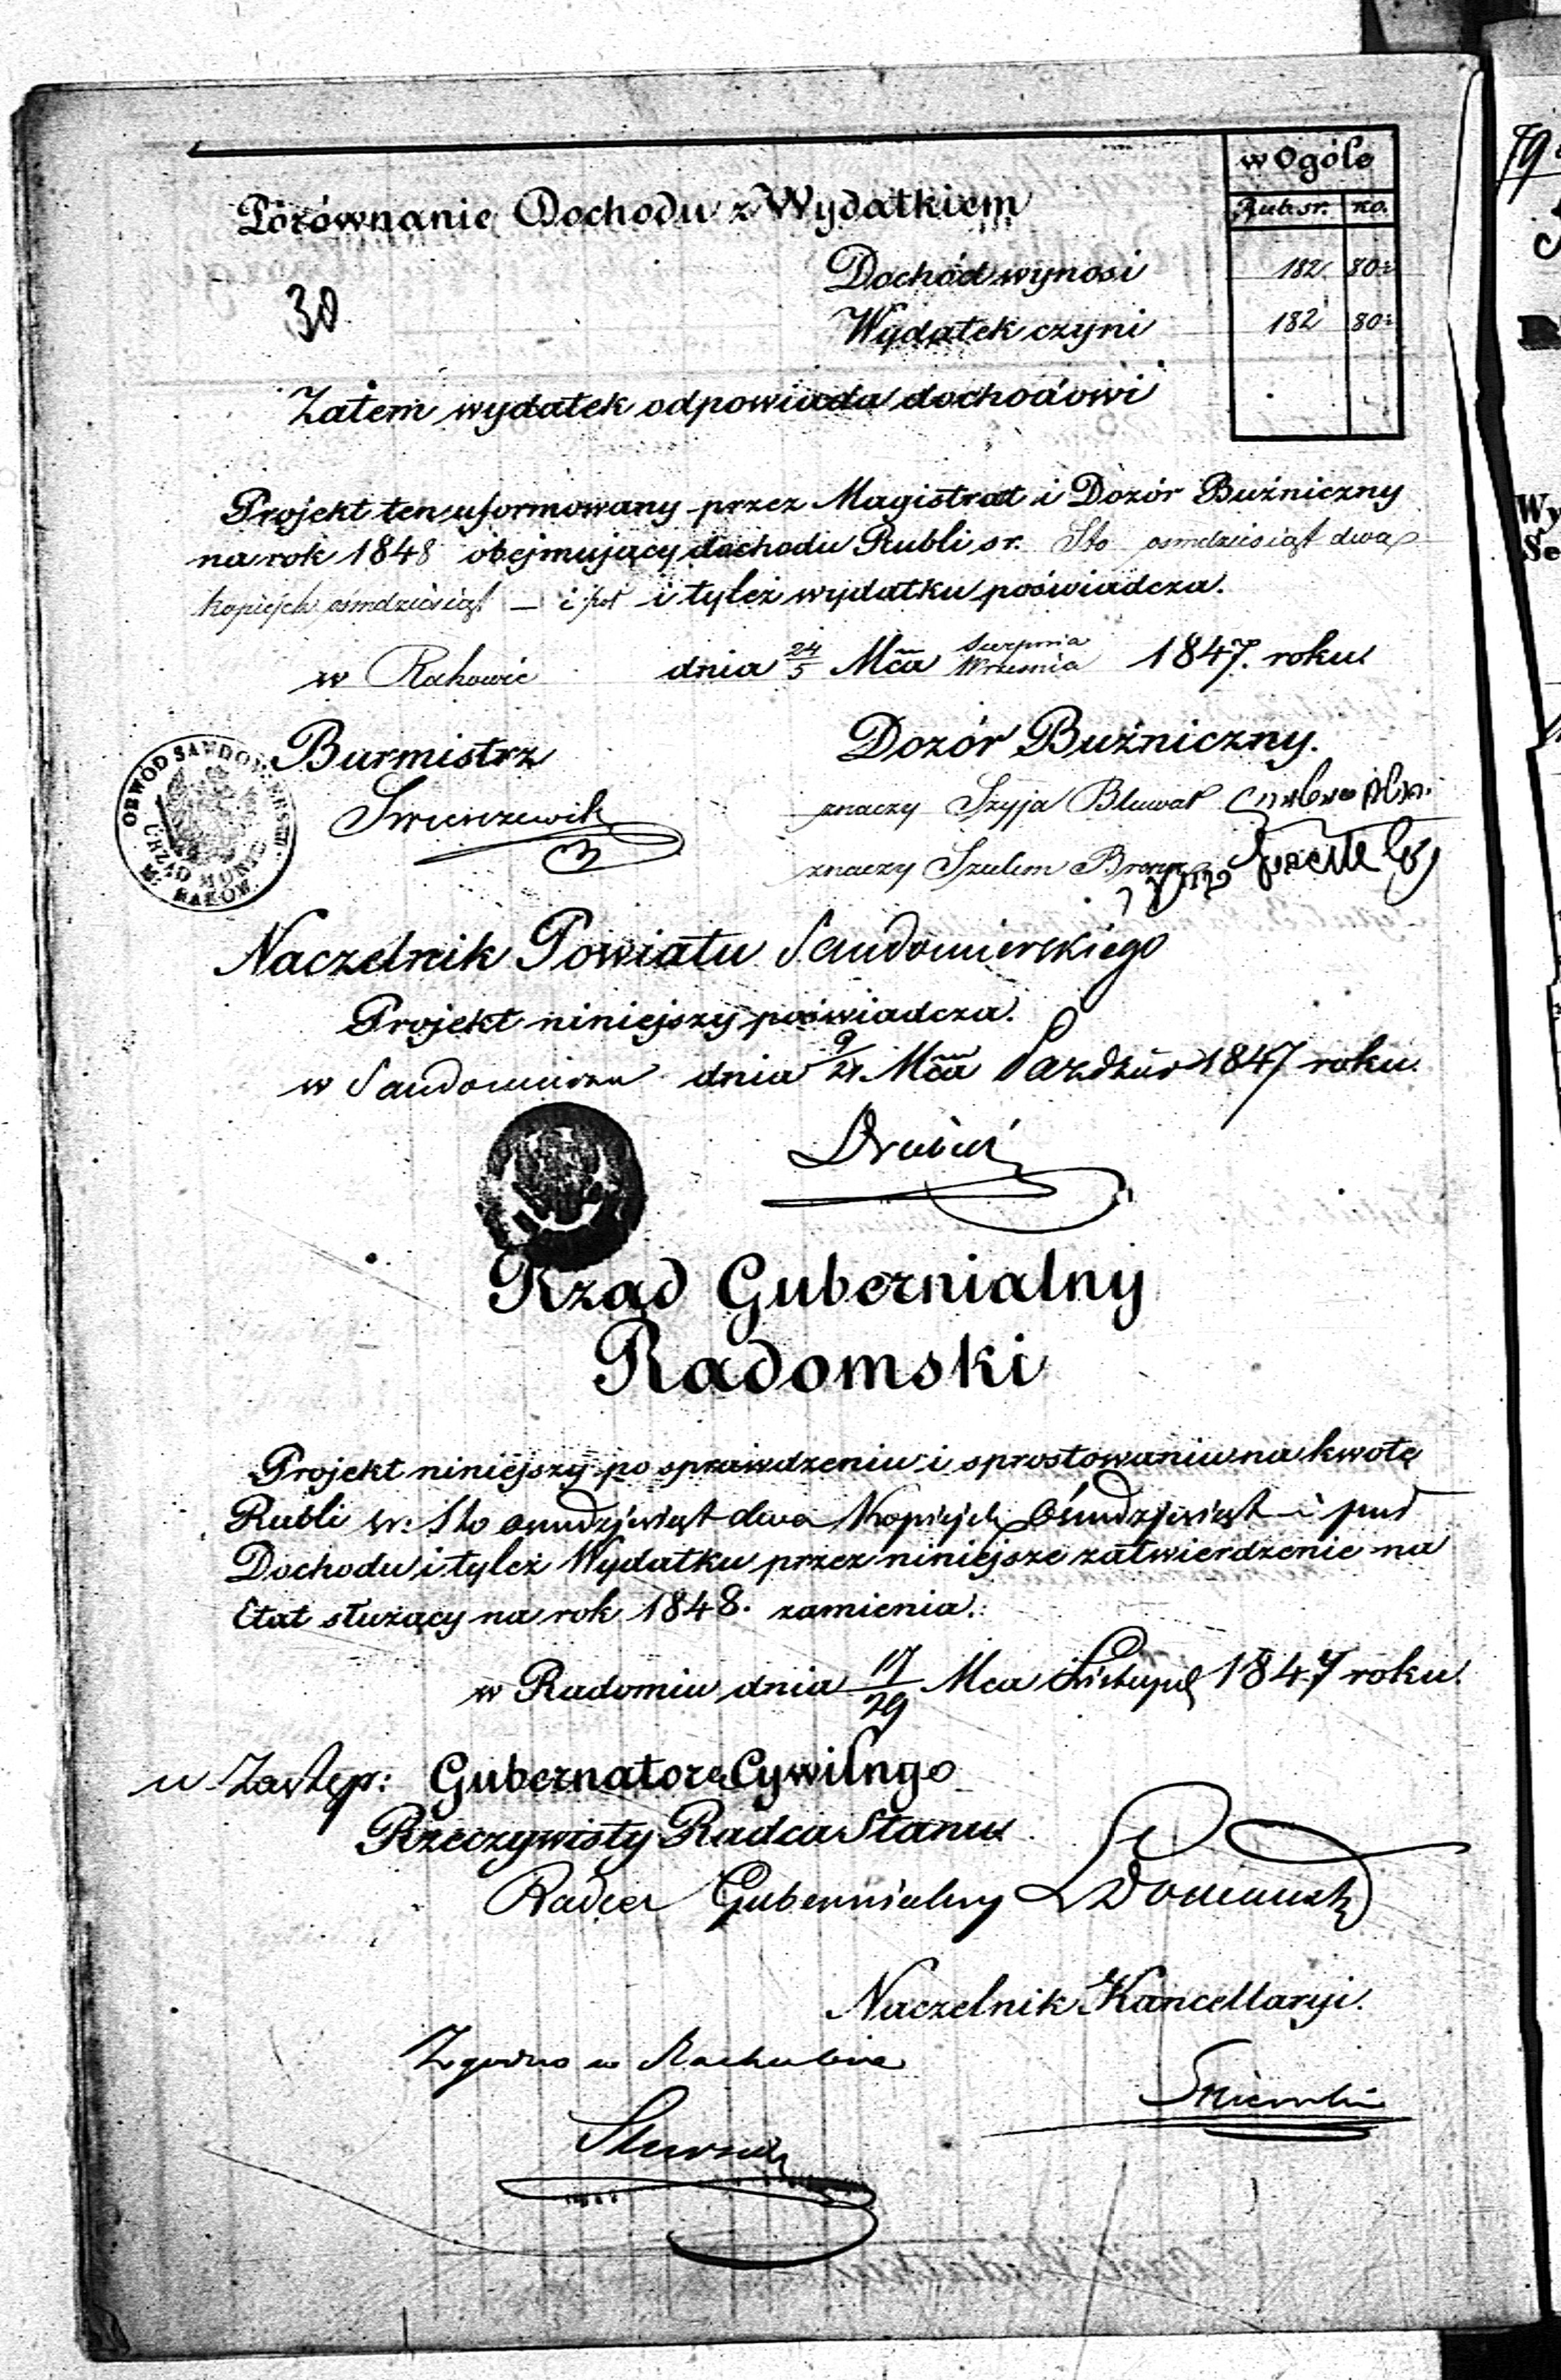 w Ogóle
Rub. sr. ko.
Porównanie Dochodu z Wydatkiem
Dochód wynosi 182 80½
30
Wydatek czyni 182 80½
Zatem wydatek odpowiada dochodowi
Projekt ten uformowany przez Magistrat i Dozór Buźniczny
na rok 1848 obejmujący dochodu Rubli sr. Sto osmdziesiąt dwa
kopiejek osmdziesiąt — i pół i tyleż wydatku poświadcza.
w Rakowie dnia 24/5 Mca Sierpnia/Września 1847. roku.
OBWÓD SANDOMIERSKI
URZĄD MUNIC.
M. RAKÓW.
Burmistrz
Dozór Buźniczny.
znaczy Szyja Bluwat
znaczy Szulem
Naczelnik Powiatu Sandomierskiego
Projekt niniejszy poświadcza.
w Sandomierzu dnia 9/21. Mca Paździer 1847 roku.
Rząd Gubernialny
Radomski
Projekt niniejszy po sprawdzeniu i sprostowaniu na kwotę
Rubli sr: Sto osmdziesiąt dwa Kopiejek Ośmdziesiąt i puł
Dochodu i tyleż Wydatku przez niniejsze zatwierdzenie na
Etat służący na rok 1848. zamienia.
w Radomiu dnia 17/29 Mca Listopad 1847 roku.
w Zastęp: Gubernatora Cywilngo
Rzeczywisty Radca Stanu
Radca Gubernialny
Naczelnik Kancellaryi.
Zgodno w Rachubie